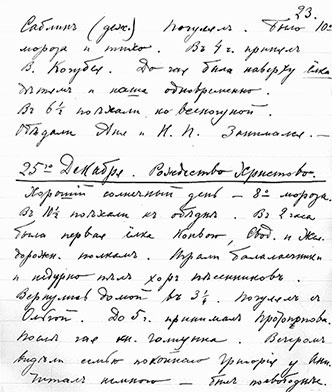 23.
Саблинъ (деж.) Погулялъ. Было 10°
мороза и тихо. Въ 4 ч. принялъ
В. Кочубея. До чая была наверху ёлка
дѣтямъ и наша одновременно.
Въ 6½ поѣхали ко всенощной.
Обѣдали Аня и Н. П. Занимался. —
25го Декабря. Рождество Христово.
Хорошій солнечный день — 8° мороза.
Въ 10½ поѣхали къ обѣднѣ. Въ 2 часа
была первая ёлка Конвою, Свод. и Жел.
дорожн. полкамъ. Играли балалаечники
и недурно пѣлъ хоръ пѣсенниковъ.
Вернулись домой въ 3¼. Погулялъ съ
Ольгой. До 5 ч. принималъ
Послѣ чая кн. Голицына. Вечеромъ
видѣли семью покойнаго Григорія у Ани.
Читалъ немного —